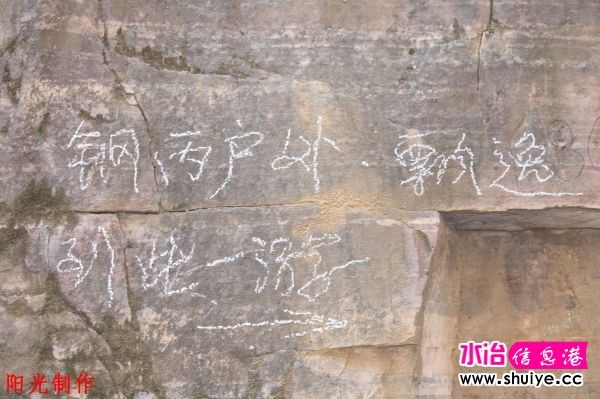 钢丙户外·飘逸
到此一游
阳光制作
水冶信息港
www.shuiye.cc